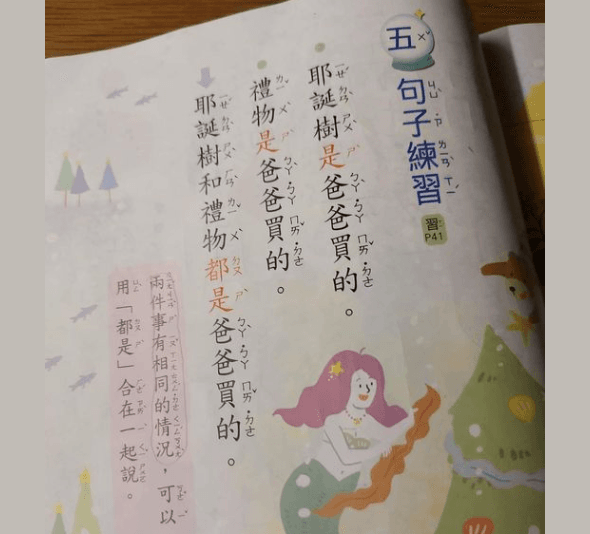 五
句子練習
習:P41
耶誕樹是爸爸買的。
禮物是爸爸買的。
耶誕樹和禮物都是爸爸買的。
兩件事有相同的情況，可以
用「都是」合在一起說。